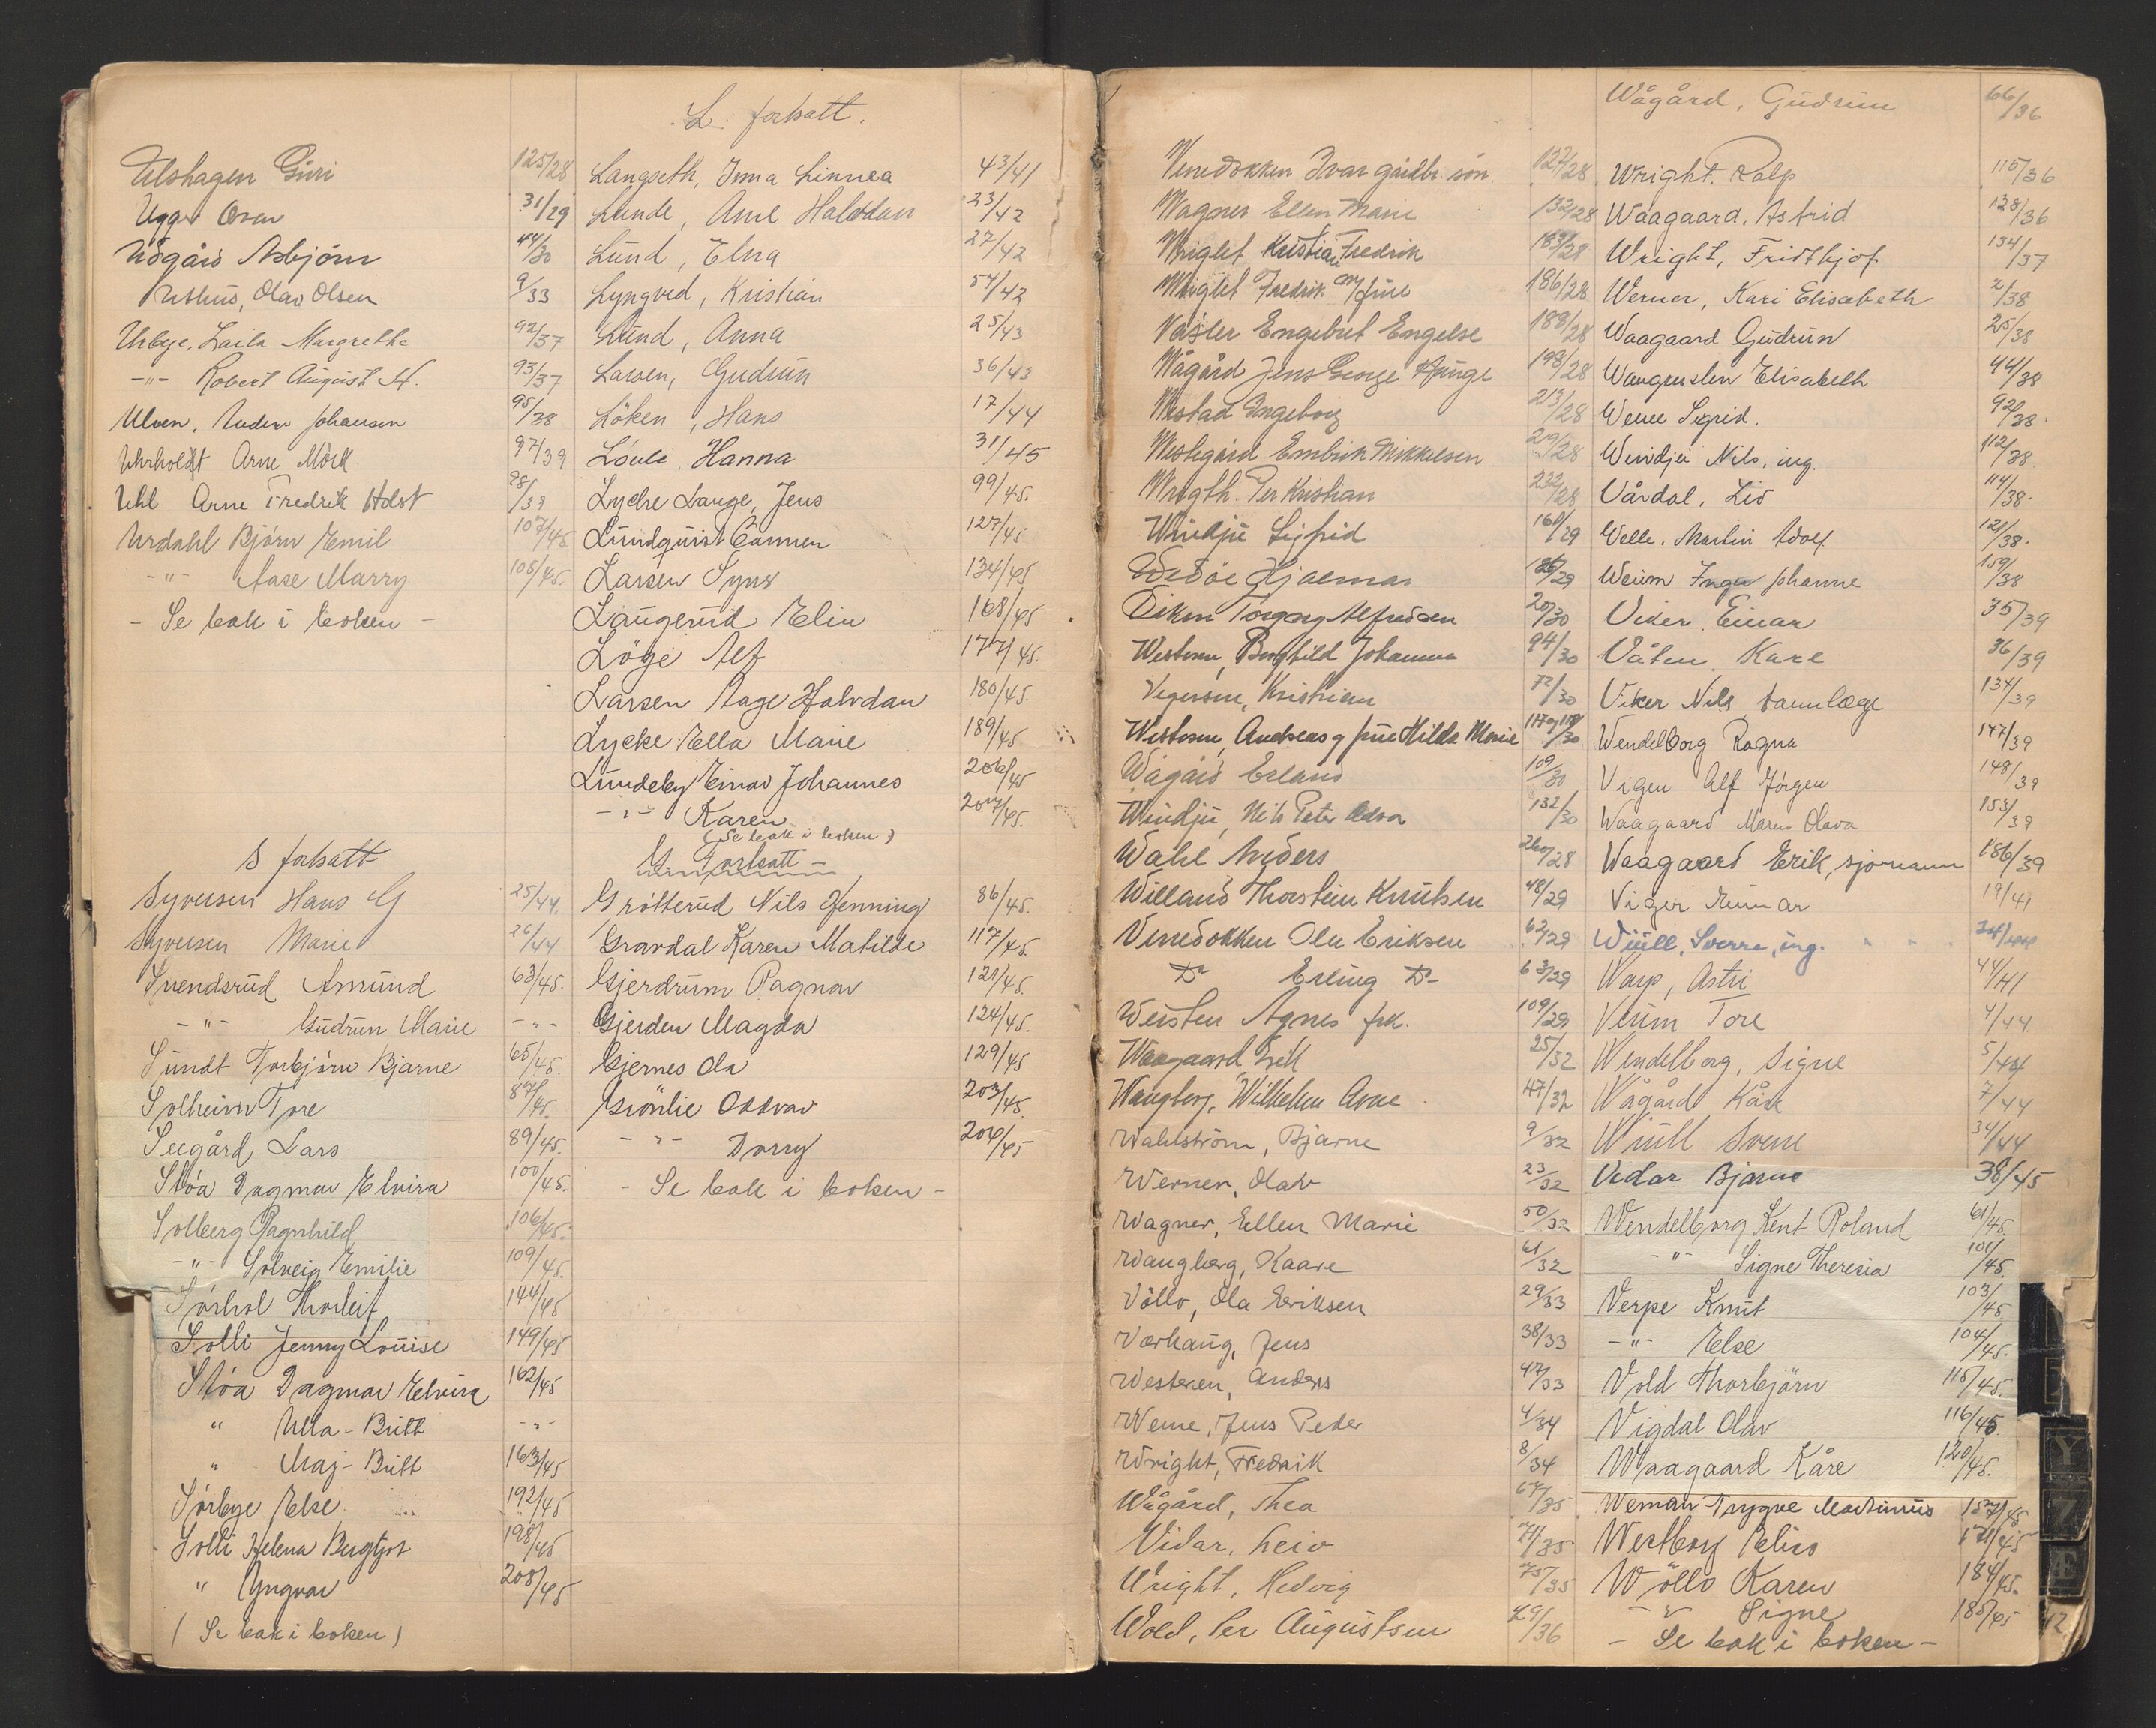 Ulshagen Guri 125/28
Ugger Oscar 31/29
Uågård Asbjörn 44/30
Ushus, Olav Olsen 9/33
Urbye, Laila Margrethe 92/37
-"- Robert August H. 93/37
Ulven, Anders Johansen 95/38
Uhrholdt Arne Mörk 97/39
Uhl Arne Fredrik Holst 98/39
Urdahl Björn Emil 107/45
-"- Aase Marry 108/45.
- Se bak i boken -
S fortsatt
Syversen Hans G 25/44.
Syversen Marie 26/44
Svendsrud Amund 63/45.
-"- Gudrun Marie -"-
Sundt Torbjörn Bjarne 65/45.
Solheim Tore 87/45.
Seegård Lars 89/45.
Stöa Dagmar Elvira 100/45.
Solberg Ragnhild 106/45.
-"- Solveig Emilie 109/45.
Sörhol Thorleif 144/45
Solli Jenny Louise 149/45
Stöa Dagmar Elvira 162/45
" Ulla-Britt -"-
" Maj-Britt 163/45
Sörbye Else 192/45
Solli Helena Bergljot 198/45
" Yngvar 208/45
(Se bak i boken)
L. fortsatt.
Langseth, Irma Linnea 43/41
Lunde, Arne Halvdan 23/42
Lund, Elna 27/42
Lyngved, Kristian 54/42
Lund, Anna 25/43
Larsen, Gudrun 36/43
Löken, Hans 17/44
Löuli, Hanna 31/45
Lyche Lange, Jens 99/45.
Lundquist Carmen 127/45
Larsen Synö 134/45
Laugerud Elin 168/45
Löge Alf 177/45.
Larsen Aage Halvdan 180/45.
Lycke Ella Marie 189/45
Lundeby Einar Johannes 206/45
-"- Karen 207/45.
(Se bak i boken)
G. Fortsatt -
Grötterud Nils Henning 86/45.
Gravdal Karen Matilde 117/45.
Gjerdrum Ragnar 121/45.
Gjerden Magda 124/45.
Gjernes Ola 129/45
Grönlie Oddvar 203/45.
-"- Dorry 204/45
- Se bak i boken -
Venedokken Ivar Guldbr. sön 127/28
Wagner Ellen Marie 132/28
Wright Kristian Fredrik 183/28
Wright Fredrik og frue 186/28
Vasler Engebret Engelse 188/28
Wågård Jens George Hjunge 198/28
Westad Ingeborg 213/28
Westegård Embrik Mikkelsen 219/28
Wrigth Per Kristian 232/28
Windju Sigfrid 168/29
Wedöe Hjalmar 186/29
Viken Torgny Alfredsen 20/30
Western, Borghild Johanna 94/30
Vegersen, Kristian 72/30
Western, Andreas og frue Hilda Marie 117 og 118/30
Wågård Erland 109/30
Windju, Nils Peter Advo 132/30
Wahl Anders 260/28
Willand Thorstein Knutsen 48/29
Venedokken Ole Eriksen 62/29
Do Erling Do 63/29
Weisten Agnes frk. 109/29
Waagaard Erik 25/32
Wangberg, Wilhelm Arne 47/32
Wahlström, Bjarne 9/32
Werner, Olav 23/32
Wagner, Ellen Marie 50/32
Wangberg, Kaare 61/32
Völlo, Ola Eriksen 29/33
Vorhaug, Jens 38/33
Westeren, Anders 47/33
Weme, Jens Peder 4/34
Wright, Fredrik 8/34
Wågård, Thea 67/35
Vidar, Leiv 71/35
Wright, Hedvig 75/35
Wold, Per Augustsen 29/36
Wågård, Gudrun 66/36
Wright, Ralp 115/36
Waagaard, Astrid 128/36
Wright, Fridthjof 134/37
Werner, Kari Elisabeth 2/38
Waagaard Gudrun 25/38
Wangensten Elisabeth 44/38
Weme Sigrid. 92/38.
Windju Nils, ing. 112/38.
Vårdal, Liv 114/38.
Welle, Martin Adolf 121/38.
Weium Inger Johanne 159/38
Viker, Einar 35/39
Våten, Kare 36/39
Viker Nils, tannlæge 134/39
Wendelborg Ragna 147/39
Vigen Alf Jörgen 148/39
Waagaard Maren Olava 153/39
Waagaard Erik, sjömann 186/39
Viger Reimar 19/41
Wüll, Sverre, ing. 34/44
Warp, Astri 44/41
Veum Tore 4/44
Wendelborg, Signe 5/44
Wågård Kåre 7/44
Wüll Sverre 34/44
Vedar Bjarne 38/45
Wendelborg Kent Roland 61/45.
-"- Signe Theresia 101/45.
Verpe Knut 103/45.
-"- Else 104/45.
Vold Thorbjörn 115/45.
Vigdal Olav 116/45
Waagaard Kåre 120/45.
Weman Trygve Martinius 157/45
Westborg Eliss 171/45
Wöllo Karen 184/45.
-"- Signe 185/45
- Se bak i boken -
Y
Z
Æ